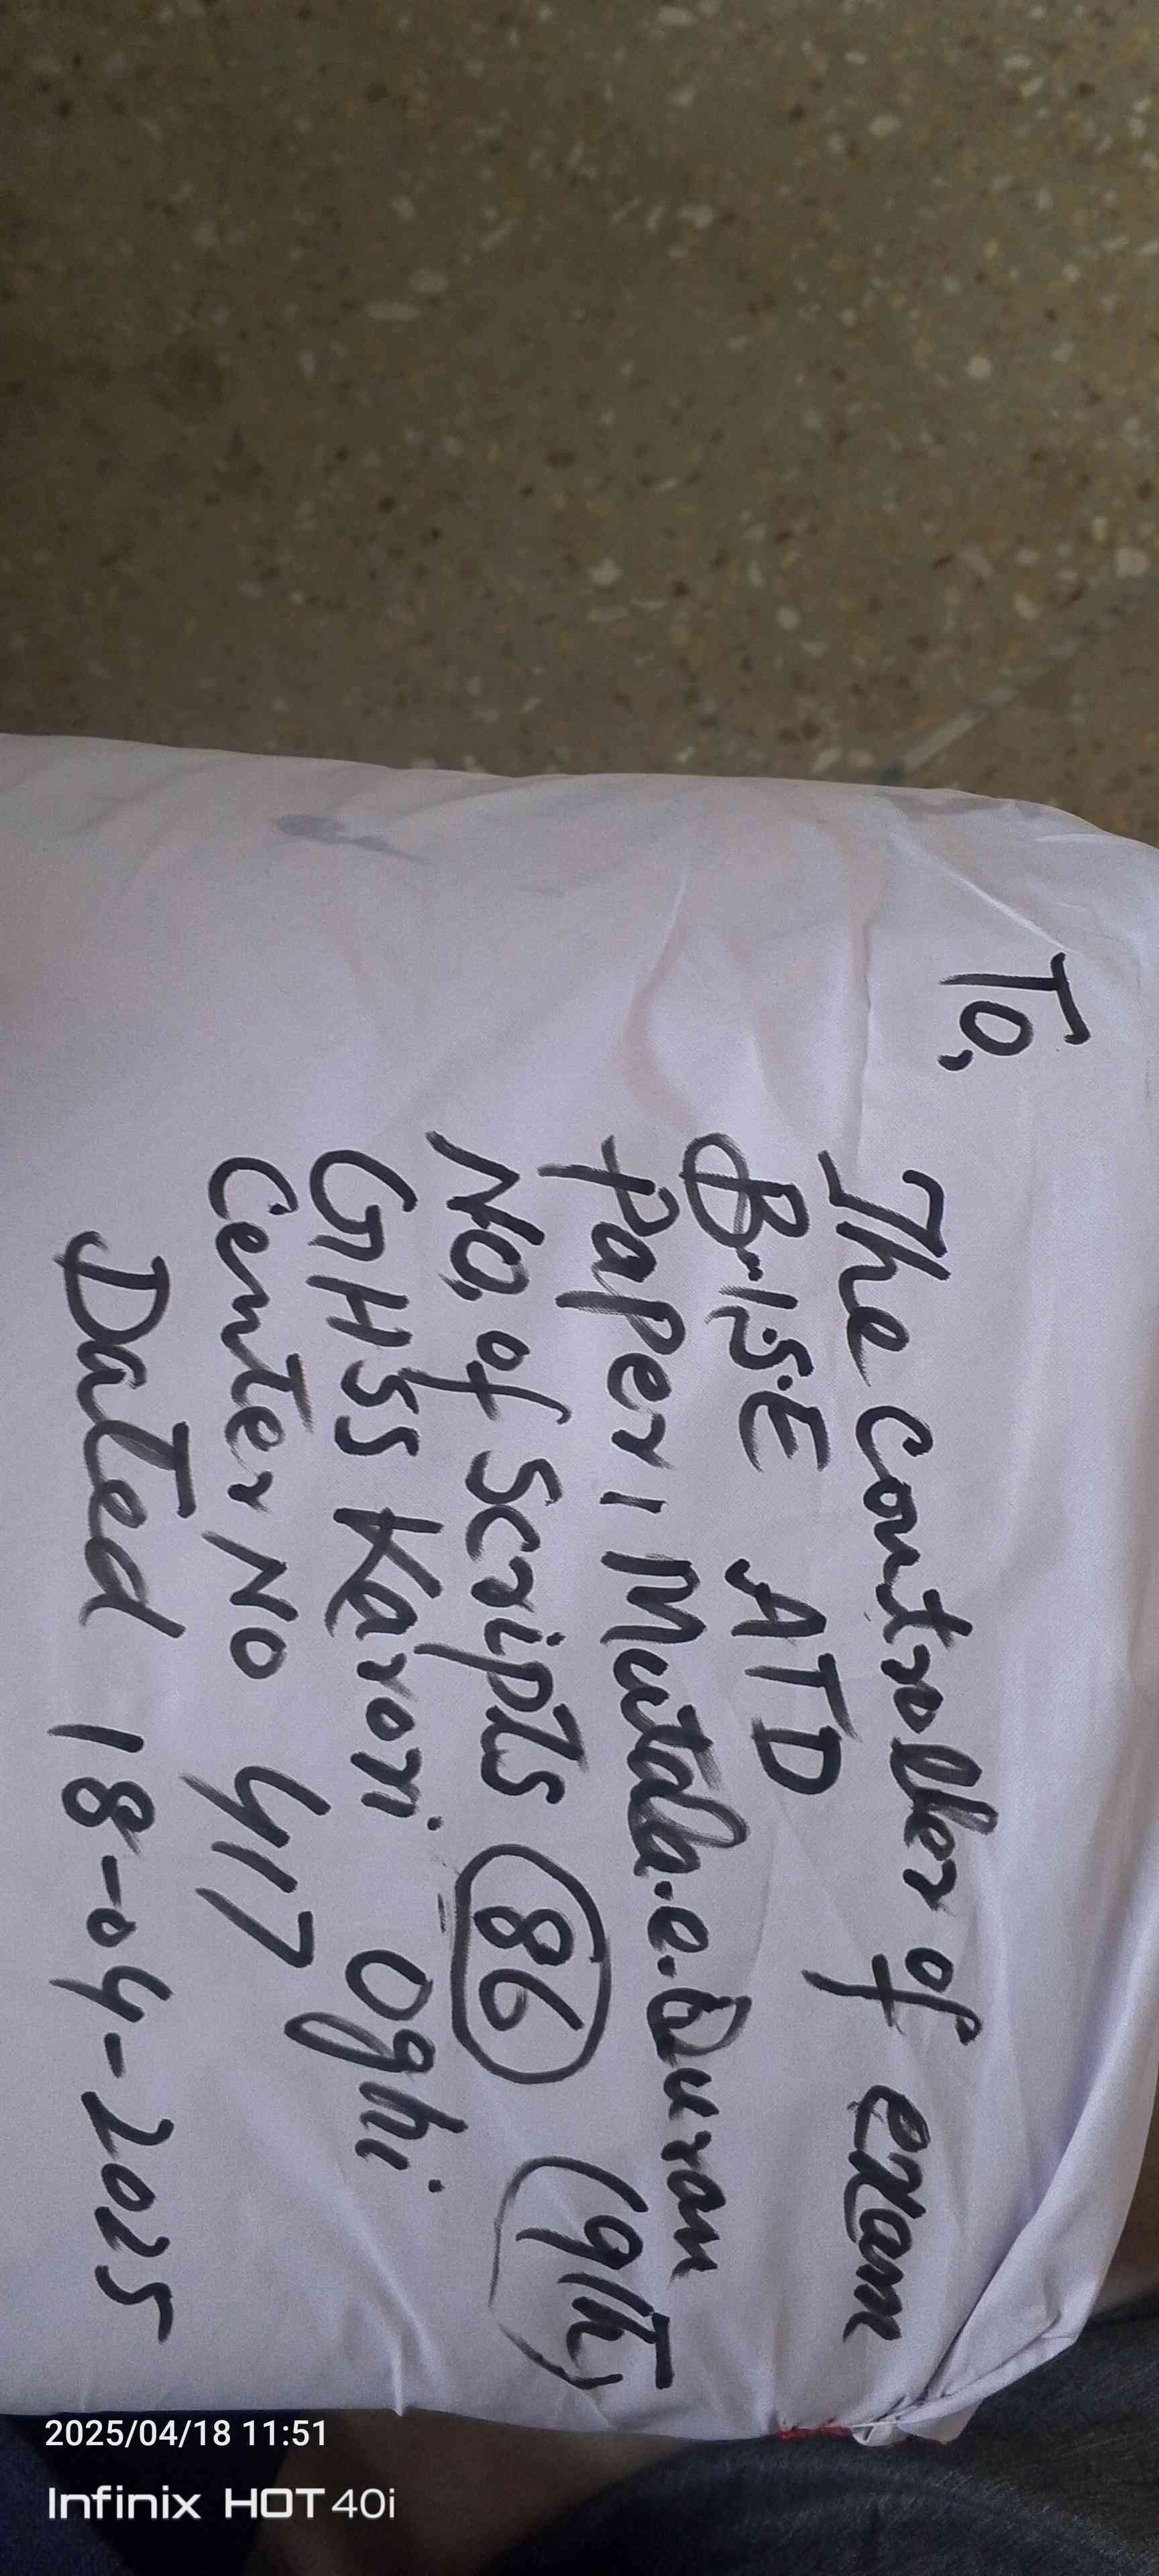 To,
The controller of exam
B.I.S.E ATD
Paper, Mutala.e.Quran
(9th)
No, of Scripts 86
GHSS Karori Oghi.
Center No 417
Dated 18-04-2025
2025/04/18 11:51
Infinix HOT 40i